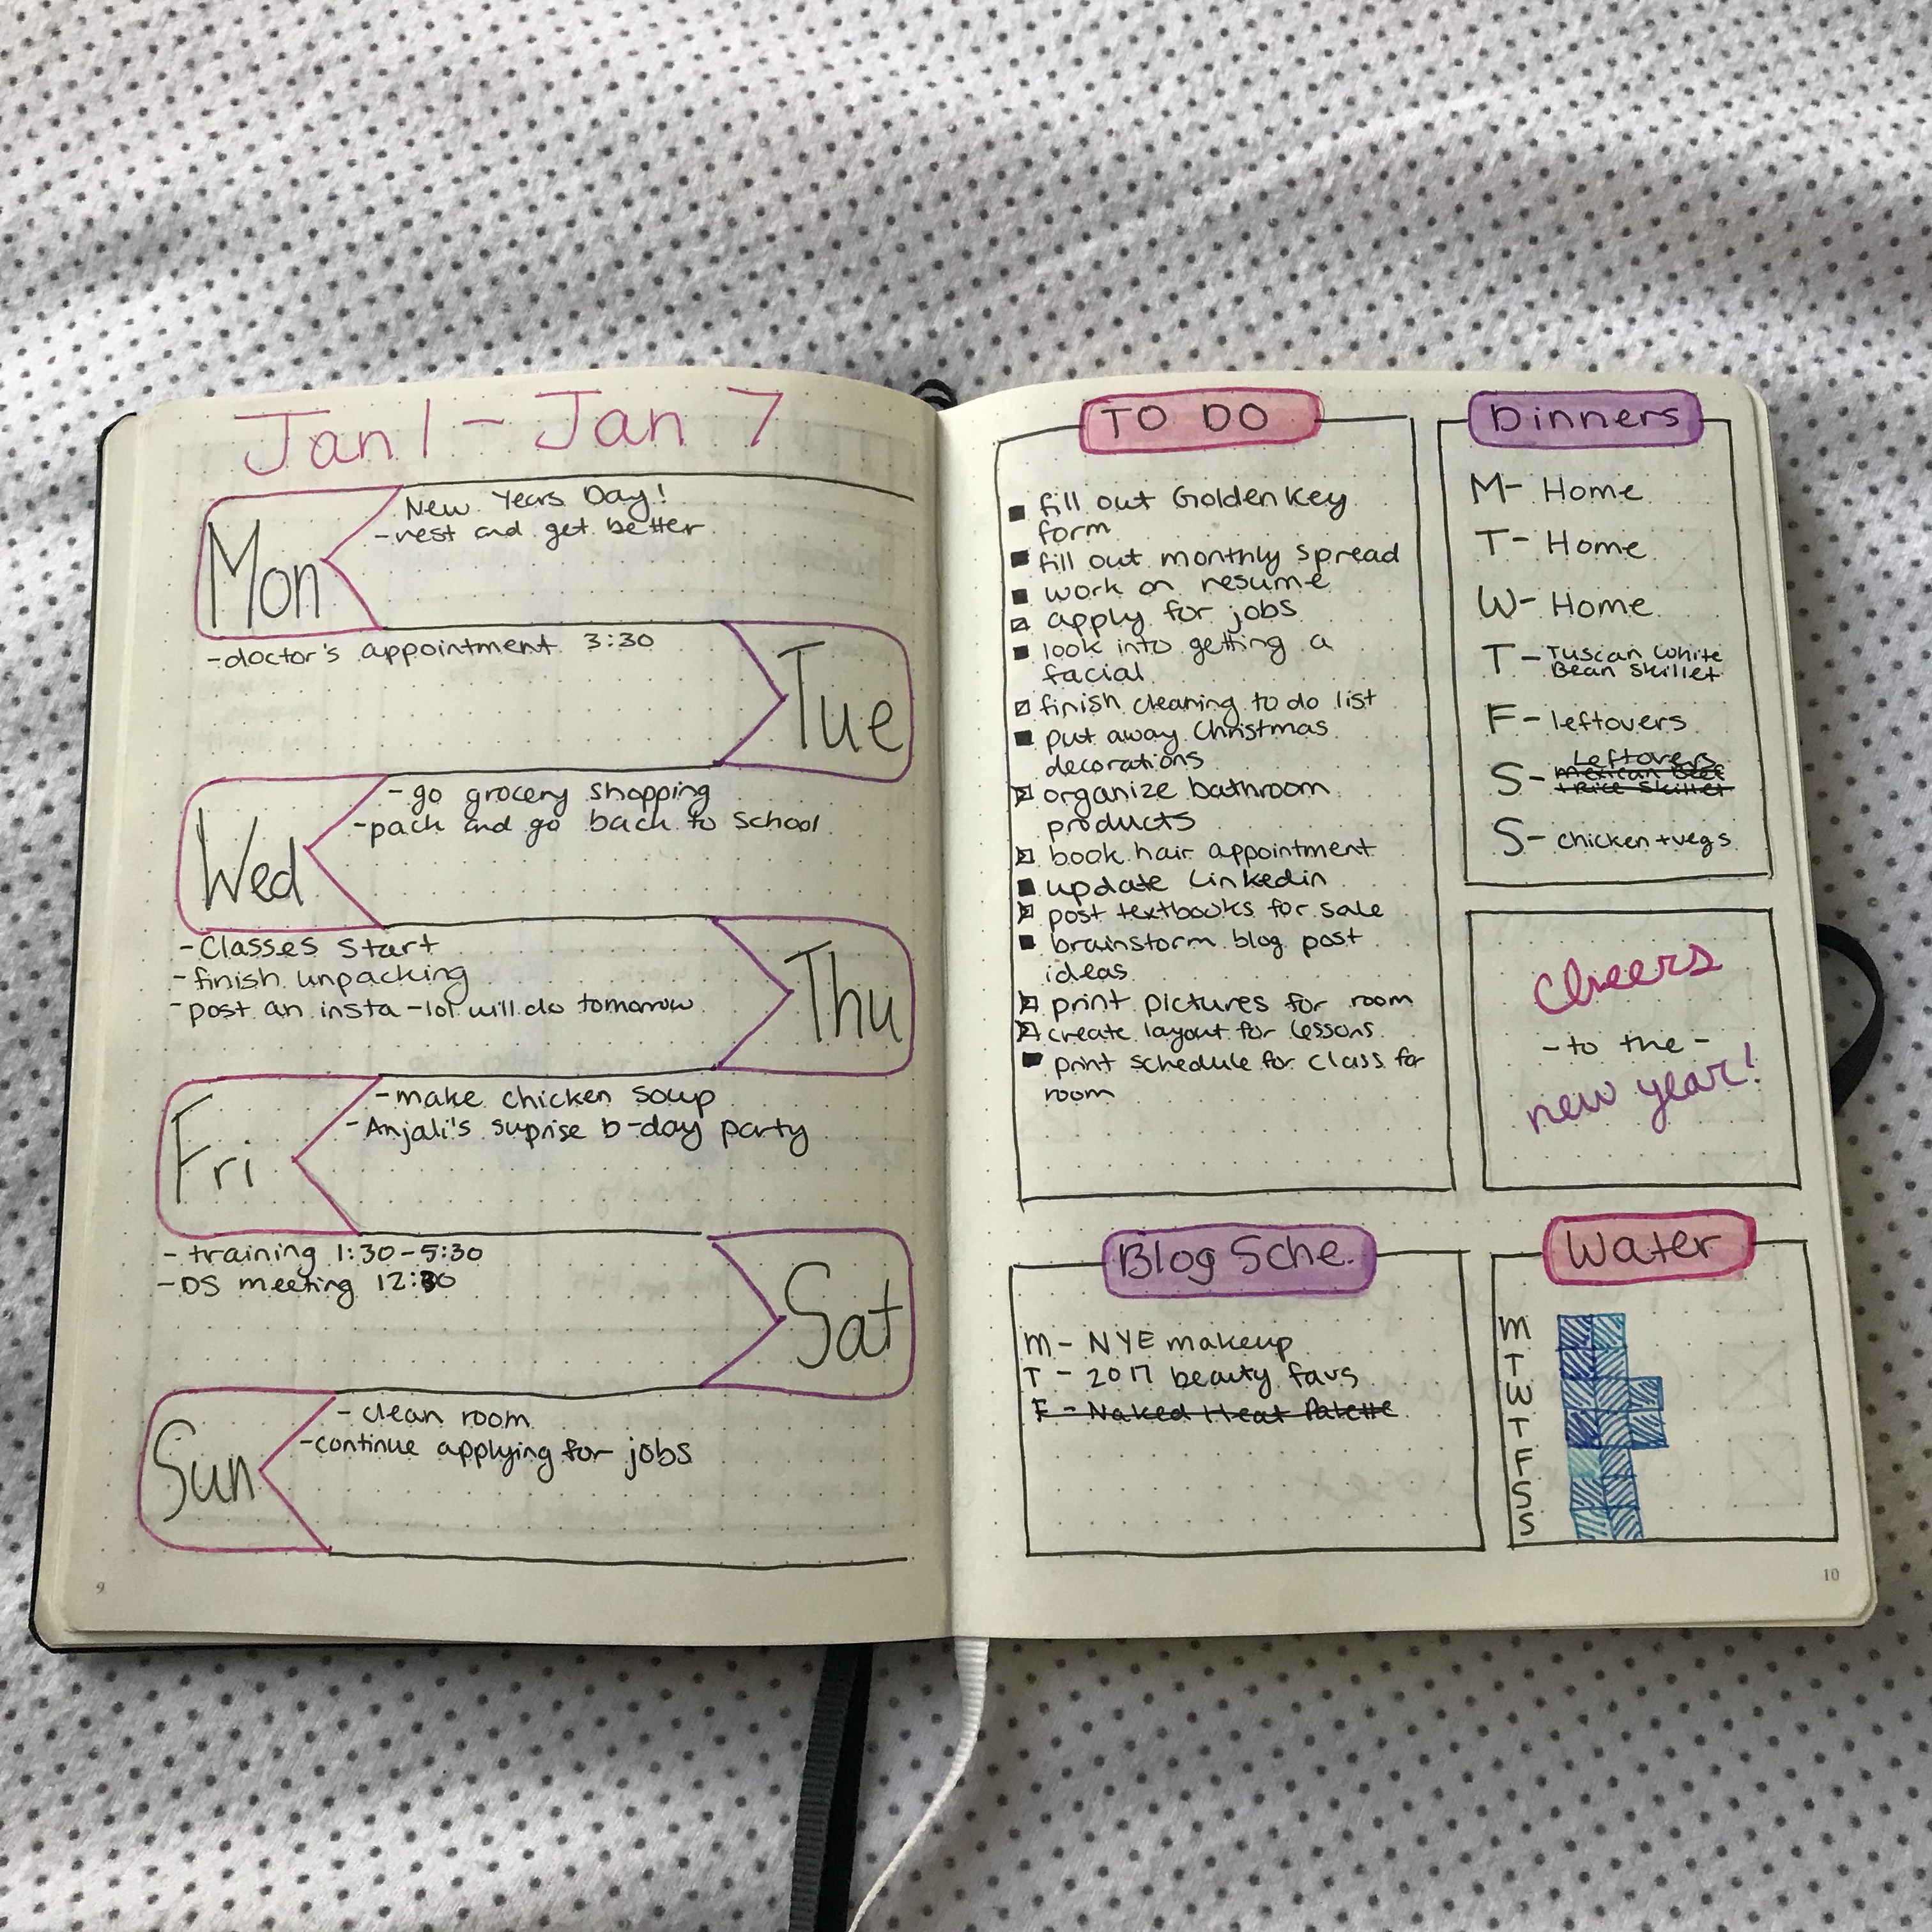 Jan 1 - Jan 7
Mon
New Years Day!
-rest and get better
-doctor's appointment 3:30
Tue
Wed
-go grocery shopping
-pack and go back to school
-Classes Start
-finish unpacking
-post an insta -lol will do tomorrow
Thu
Fri
-make chicken soup
-Anjali's suprise b-day party
- training 1:30-5:30
-DS meeting 12:30
Sat
Sun
- clean room
-continue applying for jobs
9
TO DO
fill out Golden Key
form
fill out monthly spread
work on resume
apply for jobs
look into getting a
facial
finish cleaning to do list
put away Christmas
decorations
organize bathroom
products
book hair appointment
update Linkedin
post textbooks for sale
brainstorm blog post
ideas
print pictures for room
create layout for lessons
print schedule for class for
room
Dinners
M- Home
T- Home
W- Home
T- Tuscan White
Bean Skillet
F- leftovers
Leftovers
S- Mexican Beef
+ Rice Skillet
S- chicken + vegs
Cheers
- to the -
new year!
Blog Sche.
M- NYE makeup
T - 2017 beauty favs
F - Naked Heat Palette
Water
M
T
W
T
F
S
S
10